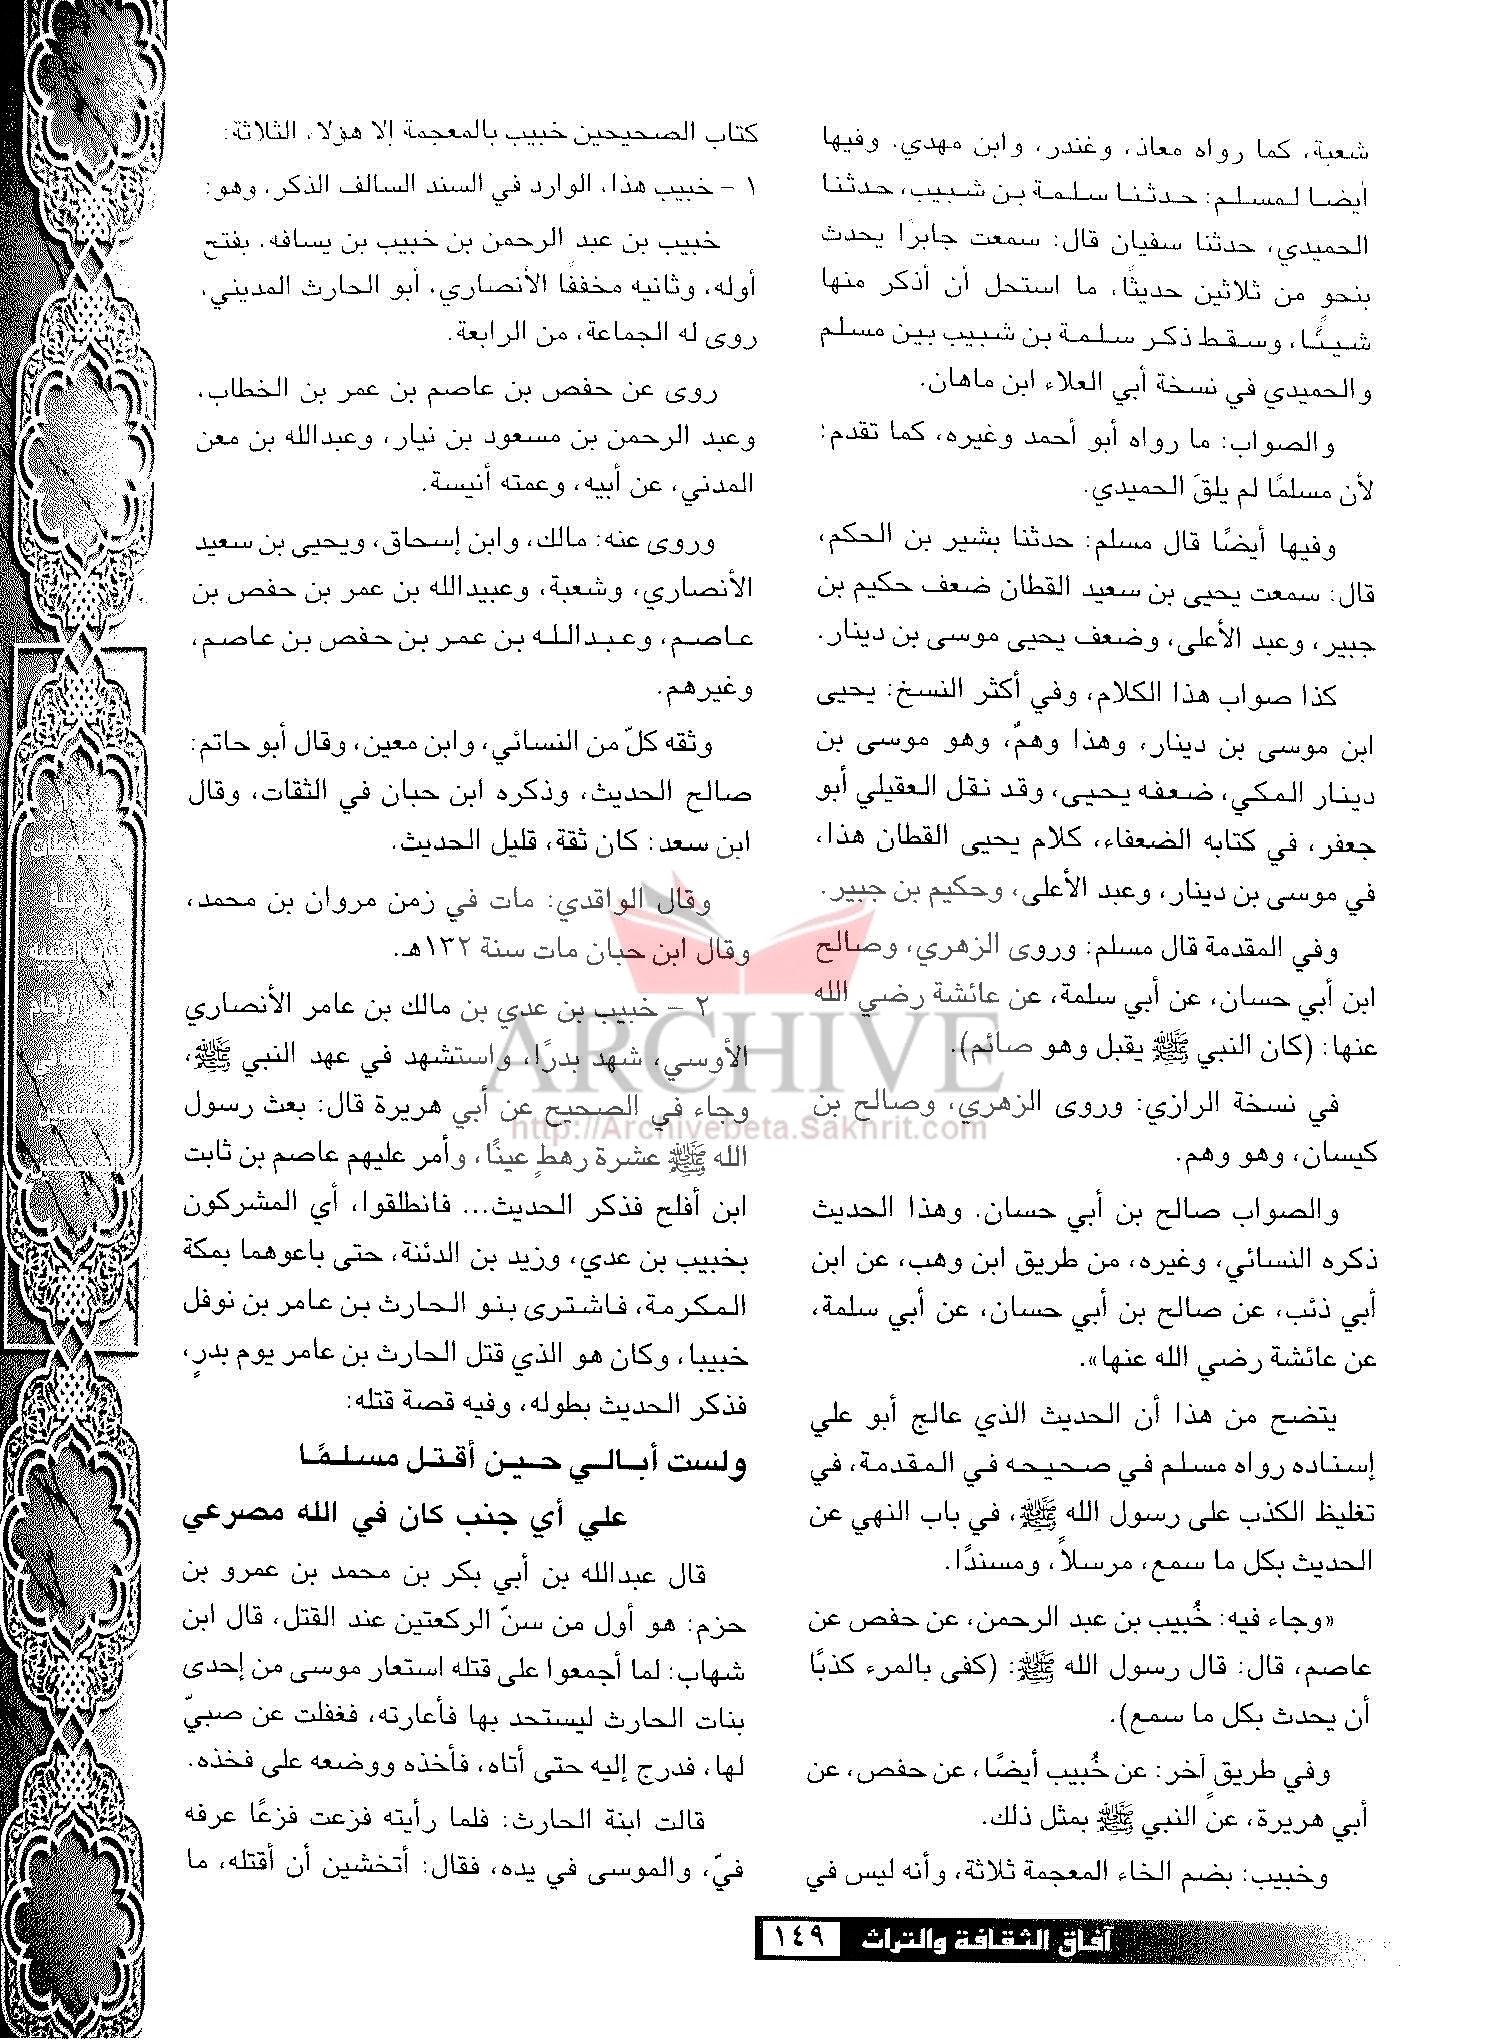 شعبة، كما رواه معاذ، وغندر، وابن مهدي. وفيها
أيضا لمسلم: حدثنا سلمة بن شبيب، حدثنا
الحميدي، حدثنا سفيان قال: سمعت جابرًا يحدث
بنحوٍ من ثلاثين حديثًا، ما استحل أن أذكر منها
شيئًا، وسقط ذكر سلمة بن شبيب بين مسلم
والحميدي في نسخة أبي العلاء ابن ماهان.
والصواب: ما رواه أبو أحمد وغيره، كما تقدم:
لأن مسلمًا لم يلقَ الحميدي.
وفيها أيضًا قال مسلم: حدثنا بشير بن الحكم،
قال: سمعت يحيى بن سعيد القطان ضعف حكيم بن
جبير، وعبد الأعلى، وضعف يحيى موسى بن دينار.
كذا صواب هذا الكلام، وفي أكثر النسخ: يحيى
ابن موسى بن دينار، وهذا وهمٌ، وهو موسى بن
دينار المكي، ضعفه يحيى، وقد نقل العقيلي أبو
جعفر، في كتابه الضعفاء، كلام يحيى القطان هذا،
في موسى بن دينار، وعبد الأعلى، وحكيم بن جبير.
وفي المقدمة قال مسلم: وروى الزهري، وصالح
ابن أبي حسان، عن أبي سلمة، عن عائشة رضي الله
عنها: (كان النبي ﷺ يقبل وهو صائم).
في نسخة الرازي: وروى الزهري، وصالح بن
كيسان، وهو وهم.
والصواب صالح بن أبي حسان. وهذا الحديث
ذكره النسائي، وغيره، من طريق ابن وهب، عن ابن
أبي ذئب، عن صالح بن أبي حسان، عن أبي سلمة،
عن عائشة رضي الله عنها».
يتضح من هذا أن الحديث الذي عالج أبو علي
إسناده رواه مسلم في صحيحه في المقدمة، في
تغليظ الكذب على رسول الله ﷺ، في باب النهي عن
الحديث بكل ما سمع، مرسلاً، ومسندًا.
«وجاء فيه: خُبيب بن عبد الرحمن، عن حفص عن
عاصم، قال: قال رسول الله ﷺ: (كفى بالمرء كذبًا
أن يحدث بكل ما سمع).
وفي طريقٍ آخر: عن خُبيب أيضًا، عن حفص، عن
أبي هريرة، عن النبي ﷺ بمثل ذلك.
وخبيب: بضم الخاء المعجمة ثلاثة، وأنه ليس في
كتاب الصحيحين خبيب بالمعجمة إلا هؤلاء الثلاثة:
١ – خبيب هذا، الوارد في السند السالف الذكر، وهو:
خبيب بن عبد الرحمن بن خبيب بن يسافه، بفتح
أوله، وثانيه مخففًا الأنصاري، أبو الحارث المديني،
روى له الجماعة، من الرابعة.
روى عن حفص بن عاصم بن عمر بن الخطاب،
وعبد الرحمن بن مسعود بن نيار، وعبدالله بن معن
المدني، عن أبيه، وعمته أنيسة.
وروى عنه: مالك، وابن إسحاق، ويحيى بن سعيد
الأنصاري، وشعبة، وعبيدالله بن عمر بن حفص بن
عاصم، وعبدالله بن عمر بن حفص بن عاصم،
وغيرهم.
وثقه كلّ من النسائي، وابن معين، وقال أبو حاتم:
صالح الحديث، وذكره ابن حبان في الثقات، وقال
ابن سعد: كان ثقة، قليل الحديث.
وقال الواقدي: مات في زمن مروان بن محمد،
وقال ابن حبان مات سنة ١٣٢هـ.
٢ – خبيب بن عدي بن مالك بن عامر الأنصاري
الأوسي، شهد بدرًا، واستشهد في عهد النبي ﷺ،
وجاء في الصحيح عن أبي هريرة قال: بعث رسول
الله ﷺ عشرة رهطٍ عينًا، وأمر عليهم عاصم بن ثابت
ابن أفلح فذكر الحديث... فانطلقوا، أي المشركون
بخبيب بن عدي، وزيد بن الدثنة، حتى باعوهما بمكة
المكرمة، فاشترى بنو الحارث بن عامر بن نوفل
خبيبا، وكان هو الذي قتل الحارث بن عامر يوم بدرٍ،
فذكر الحديث بطوله، وفيه قصة قتله:
ولست أبالي حين أقتل مسلمًا
علي أي جنب كان في الله مصرعي
قال عبدالله بن أبي بكر بن محمد بن عمرو بن
حزم: هو أول من سنّ الركعتين عند القتل، قال ابن
شهاب: لما أجمعوا على قتله استعار موسى من إحدى
بنات الحارث ليستحد بها فأعارته، فغفلت عن صبيّ
لها، فدرج إليه حتى أتاه، فأخذه ووضعه على فخذه.
قالت ابنة الحارث: فلما رأيته فزعت فزعًا عرفه
فيّ، والموسى في يده، فقال: أتخشين أن أقتله، ما
ARCHIVE
http://Archivebeta.Sakhrit.com
آفاق الثقافة والتراث ١٤٩